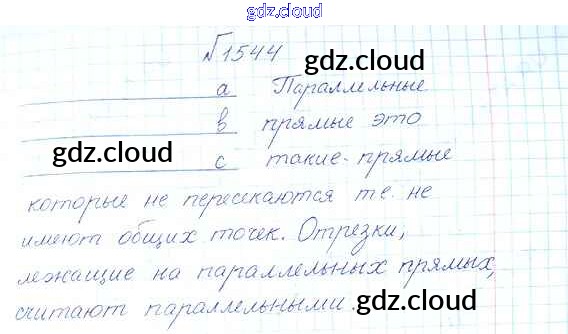 gdz.cloud
№1544 gdz.cloud
a Параллельные
в прямые это
gdz.cloud c такие прямые
которые не пересекаются т.е. не
имеют общих точек. Отрезки,
лежащие на параллельных прямых,
считают параллельными. gdz.cloud